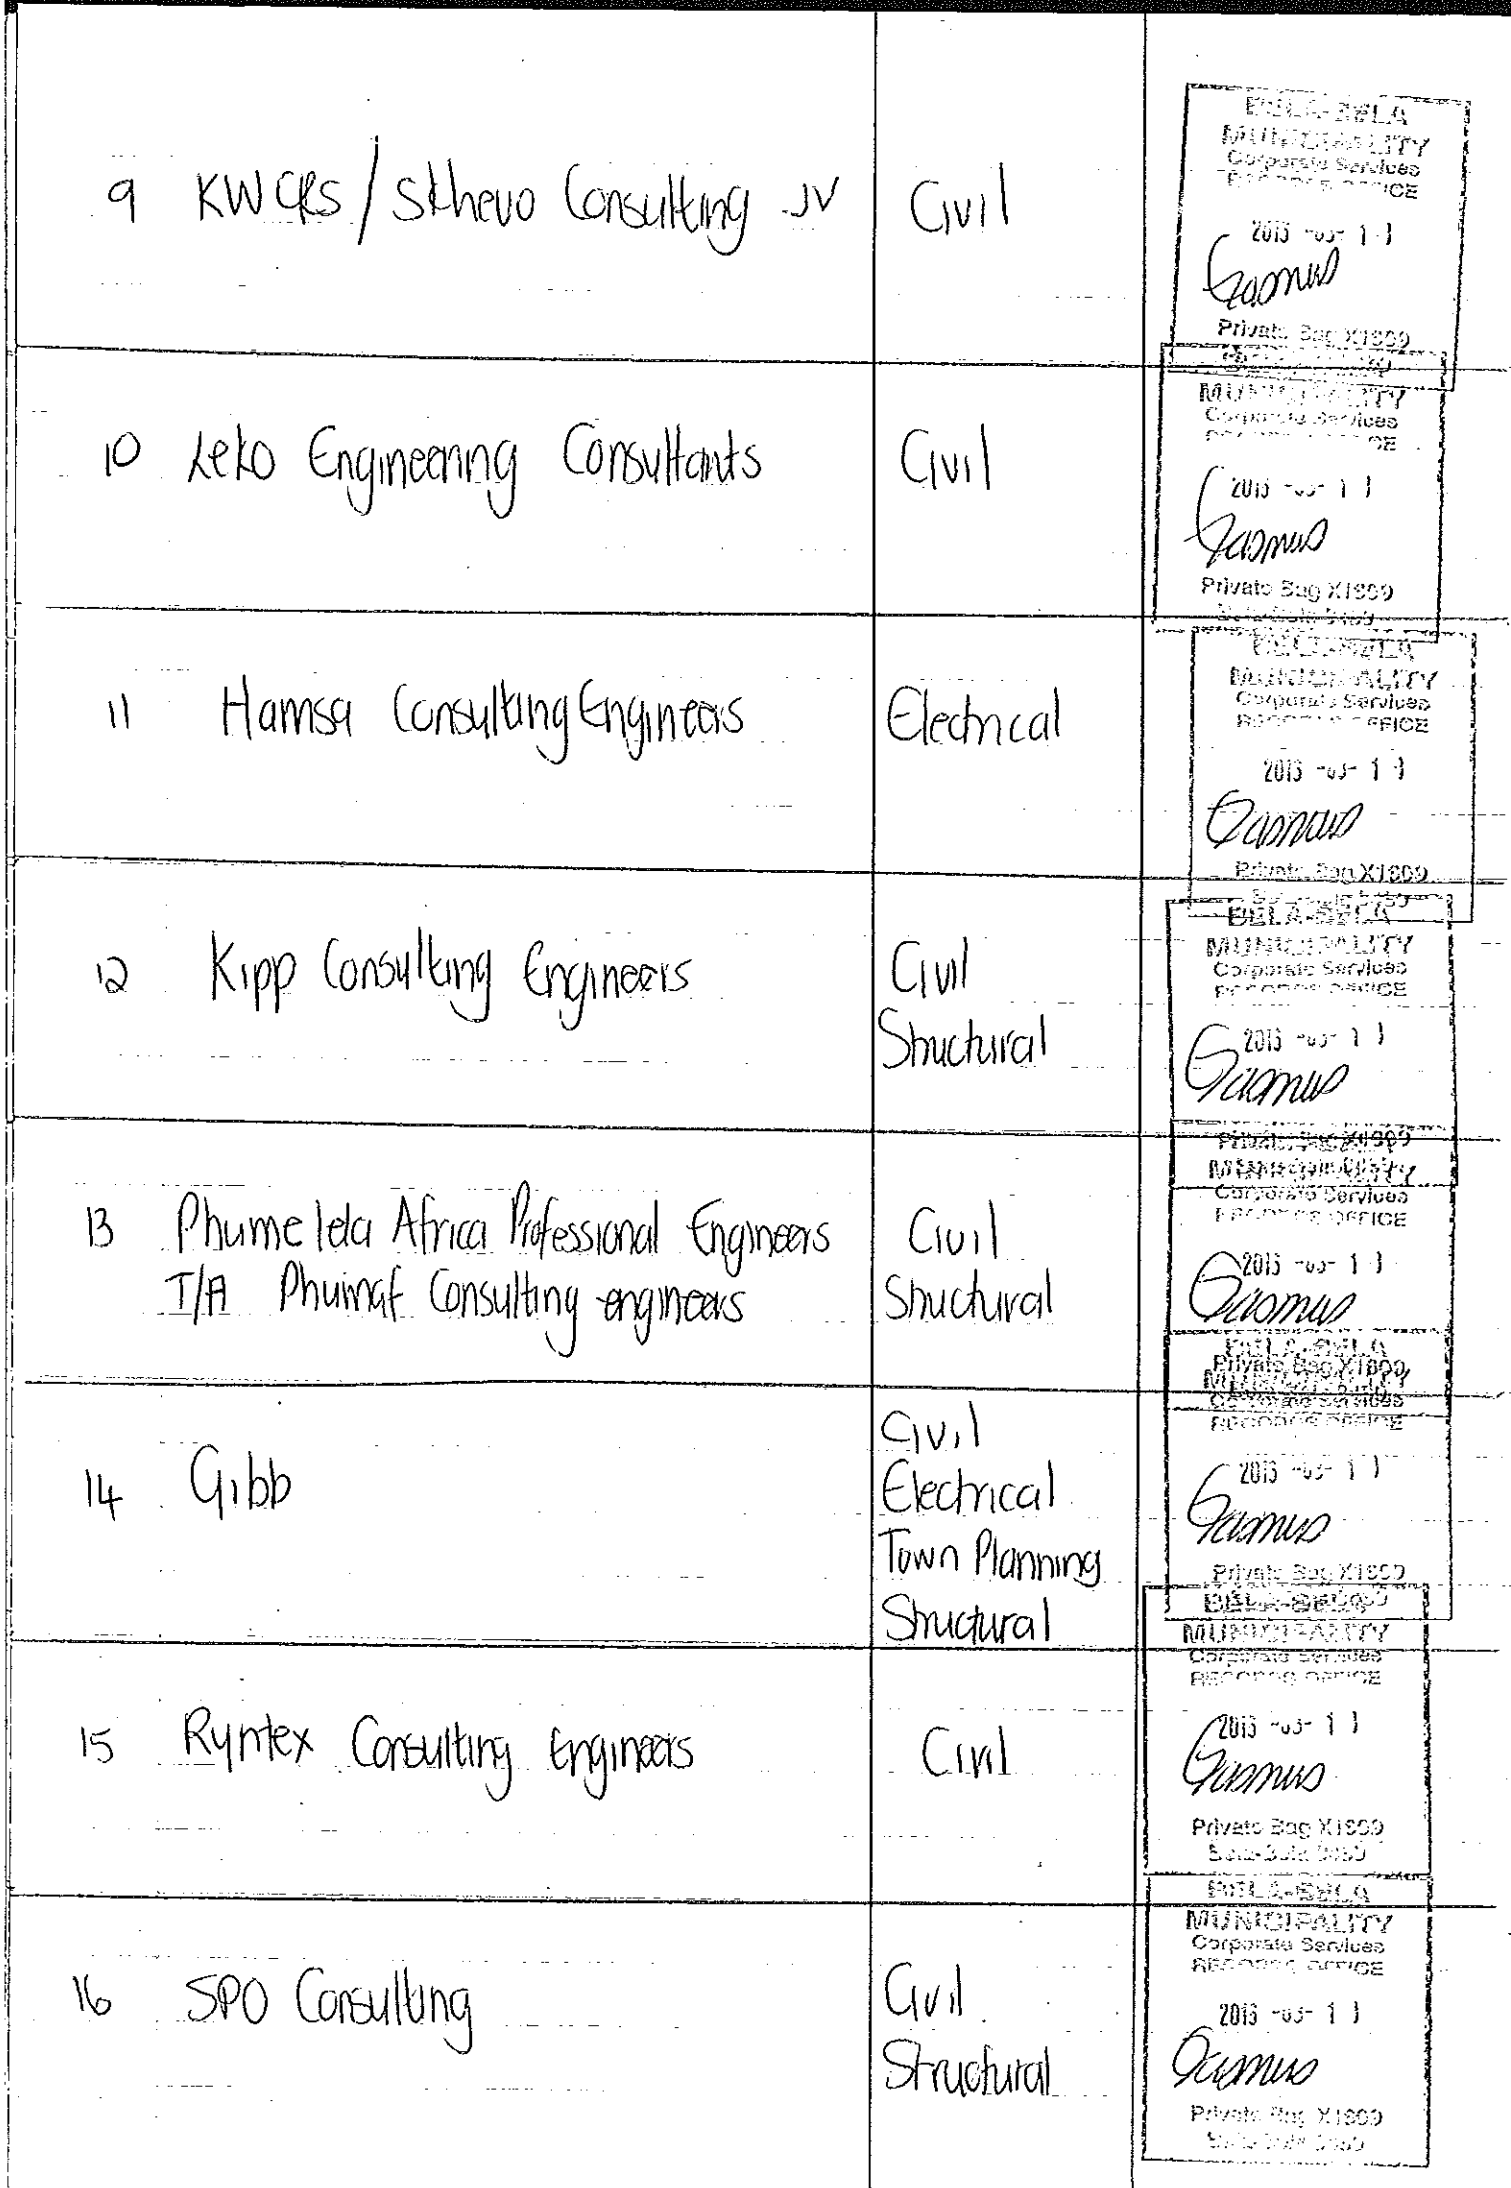 9 KWCRS / Skhevo Consulting JV Civil
BELA-BELA
MUNICIPALITY
Corporate Services
RECORDS OFFICE
Private Bag X1609
10 Leko Engineering Consultants Civil
MUNICIPALITY
Corporate Services
Private Bag X1609
Bela-Bela 0480
11 Hamsa Consulting Engineers Electrical
BELA-BELA
MUNICIPALITY
Corporate Services
RECORDS OFFICE
Private Bag X1609
12 Kipp Consulting Engineers Civil
Structural
BELA-BELA
MUNICIPALITY
Corporate Services
RECORDS OFFICE
Private Bag X1609
13 Phumelela Africa Professional Engineers Civil
T/A Phumaf Consulting engineers Structural
MUNICIPALITY
Corporate Services
RECORDS OFFICE
Private Bag X1609
14 Gibb Civil
Electrical
Town Planning
Structural
BELA-BELA
MUNICIPALITY
Corporate Services
RECORDS OFFICE
Private Bag X1609
15 Ryntex Consulting Engineers Civil
BELA-BELA
MUNICIPALITY
Corporate Services
RECORDS OFFICE
Private Bag X1609
Bela-Bela 0480
16 SPO Consulting Civil
Structural
BELA-BELA
MUNICIPALITY
Corporate Services
RECORDS OFFICE
Private Bag X1609
Bela-Bela 0480